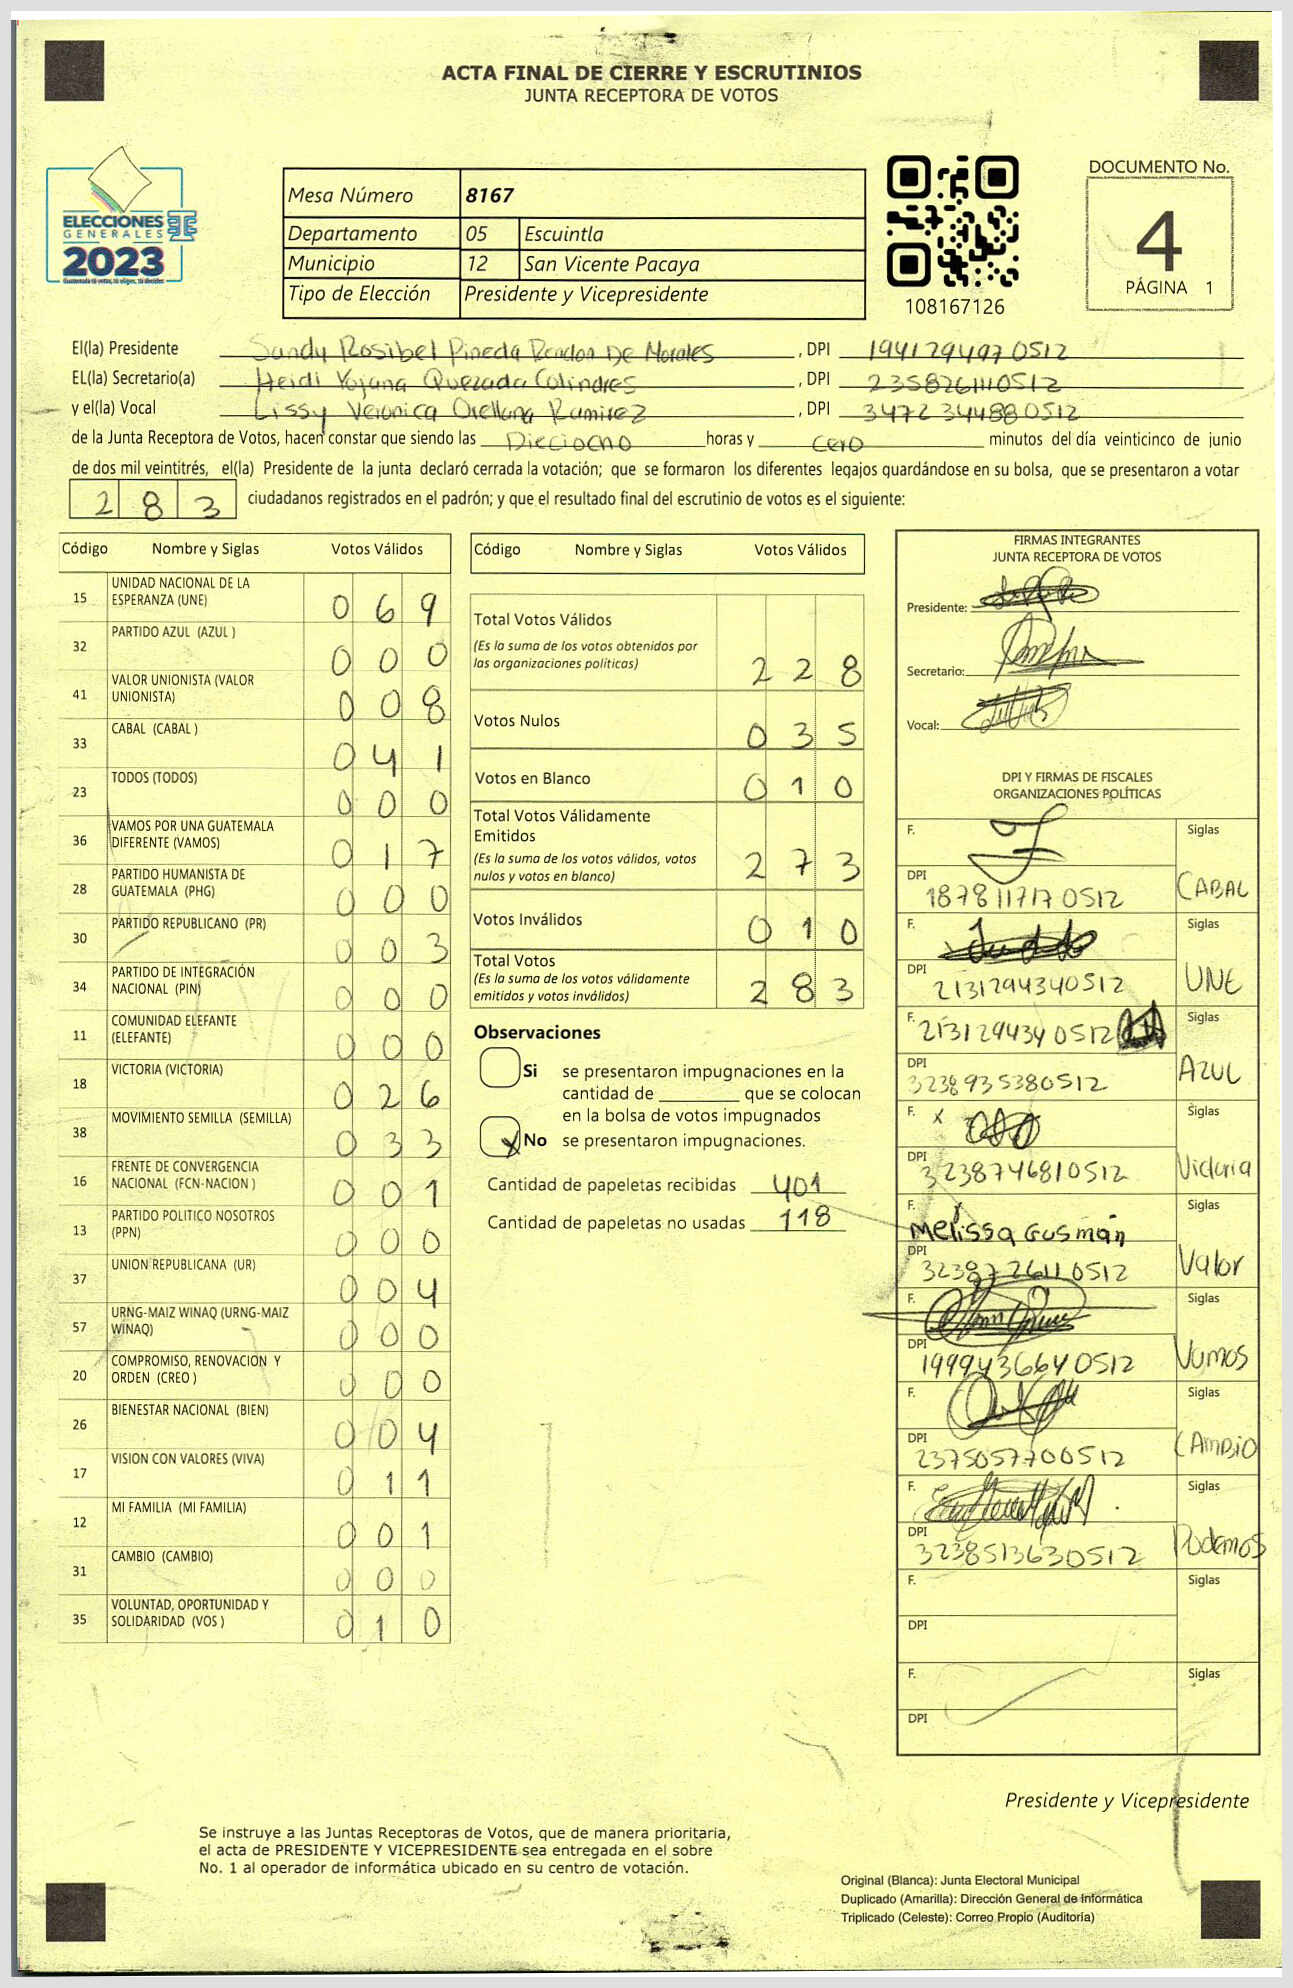 ACTA FINAL DE CIERRE Y ESCRUTINIOS
JUNTA RECEPTORA DE VOTOS
ELECCIONES
GENERALES
2023
Mesa Número 8167
Departamento 05 Escuintla
Municipio 12 San Vicente Pacaya
Tipo de Elección Presidente y Vicepresidente
108167126
DOCUMENTO No.
4
PÁGINA 1
El(la) Presidente Sandy Rosibel Pineda Rendon De Morales, DPI 1941294970512
EL(la) Secretario(a) Heidi Yojana Quezada Colindres, DPI 2358261110512
y el(la) Vocal Lissy Veronica Orellana Ramirez, DPI 3472344880512
de la Junta Receptora de Votos, hacen constar que siendo las Dieciocho horas y cero minutos del día veinticinco de junio
de dos mil veintitrés, el(la) Presidente de la junta declaró cerrada la votación; que se formaron los diferentes legajos quardándose en su bolsa, que se presentaron a votar
283 ciudadanos registrados en el padrón; y que el resultado final del escrutinio de votos es el siguiente:
Código Nombre y Siglas Votos Válidos
15 UNIDAD NACIONAL DE LA ESPERANZA (UNE) 069
32 PARTIDO AZUL (AZUL ) 000
41 VALOR UNIONISTA (VALOR UNIONISTA) 008
33 CABAL (CABAL ) 041
23 TODOS (TODOS) 000
36 VAMOS POR UNA GUATEMALA DIFERENTE (VAMOS) 017
28 PARTIDO HUMANISTA DE GUATEMALA (PHG) 000
30 PARTIDO REPUBLICANO (PR) 003
34 PARTIDO DE INTEGRACIÓN NACIONAL (PIN) 000
11 COMUNIDAD ELEFANTE (ELEFANTE) 000
18 VICTORIA (VICTORIA) 026
38 MOVIMIENTO SEMILLA (SEMILLA) 033
16 FRENTE DE CONVERGENCIA NACIONAL (FCN-NACION ) 001
13 PARTIDO POLITICO NOSOTROS (PPN) 000
37 UNION REPUBLICANA (UR) 004
57 URNG-MAIZ WINAQ (URNG-MAIZ WINAQ) 000
20 COMPROMISO, RENOVACION Y ORDEN (CREO ) 000
26 BIENESTAR NACIONAL (BIEN) 004
17 VISION CON VALORES (VIVA) 011
12 MI FAMILIA (MI FAMILIA) 001
31 CAMBIO (CAMBIO) 000
35 VOLUNTAD, OPORTUNIDAD Y SOLIDARIDAD (VOS ) 010
Código Nombre y Siglas Votos Válidos
Total Votos Válidos
(Es la suma de los votos obtenidos por las organizaciones políticas) 228
Votos Nulos 035
Votos en Blanco 010
Total Votos Válidamente Emitidos
(Es la suma de los votos válidos, votos nulos y votos en blanco) 273
Votos Inválidos 010
Total Votos
(Es la suma de los votos válidamente emitidos y votos inválidos) 283
Observaciones
Si se presentaron impugnaciones en la
cantidad de ________ que se colocan
en la bolsa de votos impugnados
x No se presentaron impugnaciones.
Cantidad de papeletas recibidas 401
Cantidad de papeletas no usadas 118
FIRMAS INTEGRANTES
JUNTA RECEPTORA DE VOTOS
Presidente:
Secretario:
Vocal:
DPI Y FIRMAS DE FISCALES
ORGANIZACIONES POLÍTICAS
F. Siglas
DPI 1878117170512 CABAL
F. Siglas
DPI 2131294340512 UNE
F. 2131294340512 Siglas
DPI 3238935380512 AZUL
F. x Siglas
DPI 3238746810512 Victoria
F. Melissa Gusmán Siglas
DPI 3238726110512 Valor
F. Siglas
DPI 1999436640512 Vamos
F. Siglas
DPI 2375057700512 CAMBIO
F. Siglas
DPI 3238513630512 Podemos
F. Siglas
DPI
F. Siglas
DPI
Presidente y Vicepresidente
Se instruye a las Juntas Receptoras de Votos, que de manera prioritaria,
el acta de PRESIDENTE Y VICEPRESIDENTE sea entregada en el sobre
No. 1 al operador de informática ubicado en su centro de votación.
Original (Blanca): Junta Electoral Municipal
Duplicado (Amarilla): Dirección General de Informática
Triplicado (Celeste): Correo Propio (Auditoría)